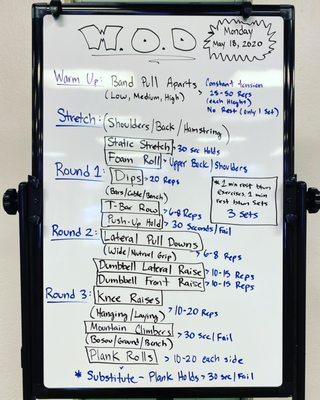 W.O.D
Monday
May 18, 2020
Warm Up: Band Pull Aparts
(Low, Medium, High)
Constant tension
> 25-50 Reps
(each Height)
No Rest (only 1 Set)
Stretch: (Shoulders/Back/Hamstring)
Static Stretch > 30 sec Holds
Foam Roll > Upper Back/Shoulders
Round 1: Dips > 20 Reps
(Bars/Cable/Bench)
T-Bar Row > 6-8 Reps
Push-Up Hold > 30 Seconds/Fail
* 1 min rest btwn
Exercises, 2 min
rest btwn Sets
3 Sets
Round 2: Lateral Pull Downs
(Wide/Nutral Grip) > 6-8 Reps
Dumbbell Lateral Raise > 10-15 Reps
Dumbbell Front Raise > 10-15 Reps
Round 3: Knee Raises
(Hanging/Laying) > 10-20 Reps
Mountain Climbers
(Bosu/Ground/Bench) > 30 sec/Fail
Plank Rolls > 10-20 each side
* Substitute - Plank Holds > 30 sec/Fail